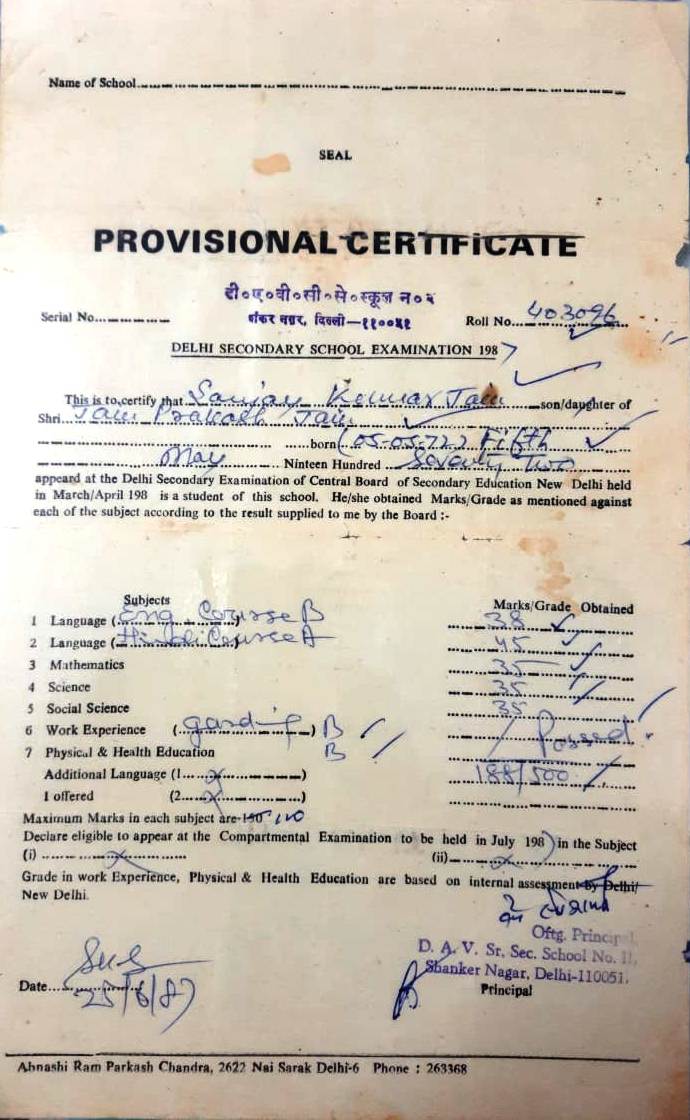 Name of School
SEAL
PROVISIONAL CERTIFICATE
डी०ए०वी०सी०से०स्कूल न०२
Serial No. शंकर नगर, दिल्ली—११००५१ Roll No. 403096
DELHI SECONDARY SCHOOL EXAMINATION 1987
This is to certify that Sanjay Kumar Jain son/daughter of
Shri Jai Prakash Jain
born (05-05-72) Fifth
May Ninteen Hundred Seventy Two
appeard at the Delhi Secondary Examination of Central Board of Secondary Education New Delhi held
in March/April 198 is a student of this school. He/she obtained Marks/Grade as mentioned against
each of the subject according to the result supplied to me by the Board :-
Subjects Marks/Grade Obtained
1 Language (Eng Course B) 38
2 Language (Hindi Course A) 45
3 Mathematics 35
4 Science 35
5 Social Science 35
6 Work Experience ( ) B Passed
7 Physical & Health Education B
Additional Language (1 x ) 188/500
I offered (2 x )
Maximum Marks in each subject are 100
Declare eligible to appear at the Compartmental Examination to be held in July 1987 in the Subject
(i) x (ii) x
Grade in work Experience, Physical & Health Education are based on internal assessment by Delhi/
New Delhi.
Oftg. Principal,
D. A. V. Sr. Sec. School No. II,
Shanker Nagar, Delhi-110051.
Date 25/6/87 Principal
Ahnashi Ram Parkash Chandra, 2622 Nai Sarak Delhi-6 Phone : 263368